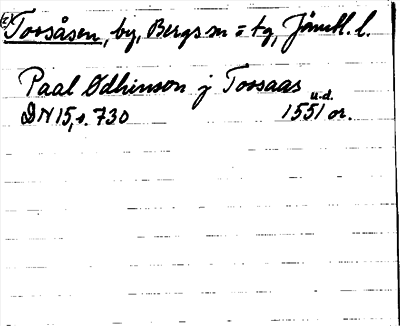 (E) Torsåsen, by, Bergs sn = tg, Jämtl. l.
Paal Ødhinson j Torsaas
u.d.
DN 15, s. 730 1551 or.